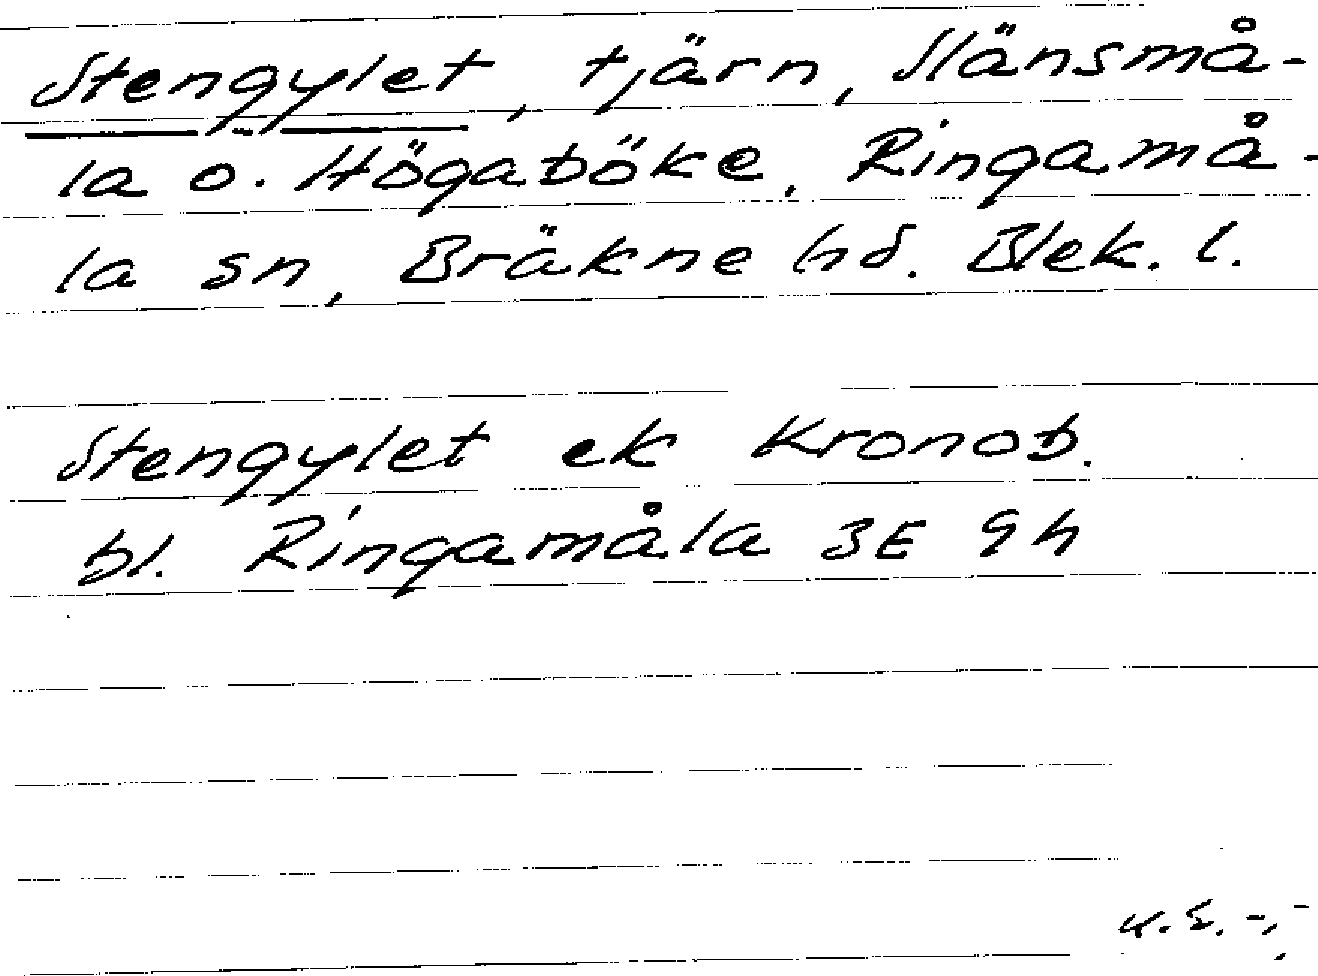 Stengylet, tjärn, Slänsmå-
la o. Högaböke, Ringamå-
la sn, Bräkne hd. Blek. l.
Stengylet ek Kronob.
bl. Ringamåla 3E 9h